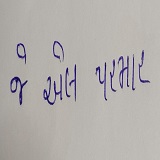 જે એલ પરમાર